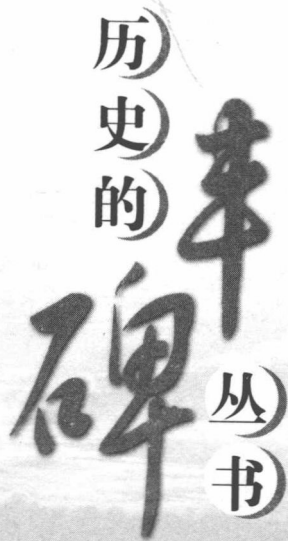 历史的
丰碑
丛书